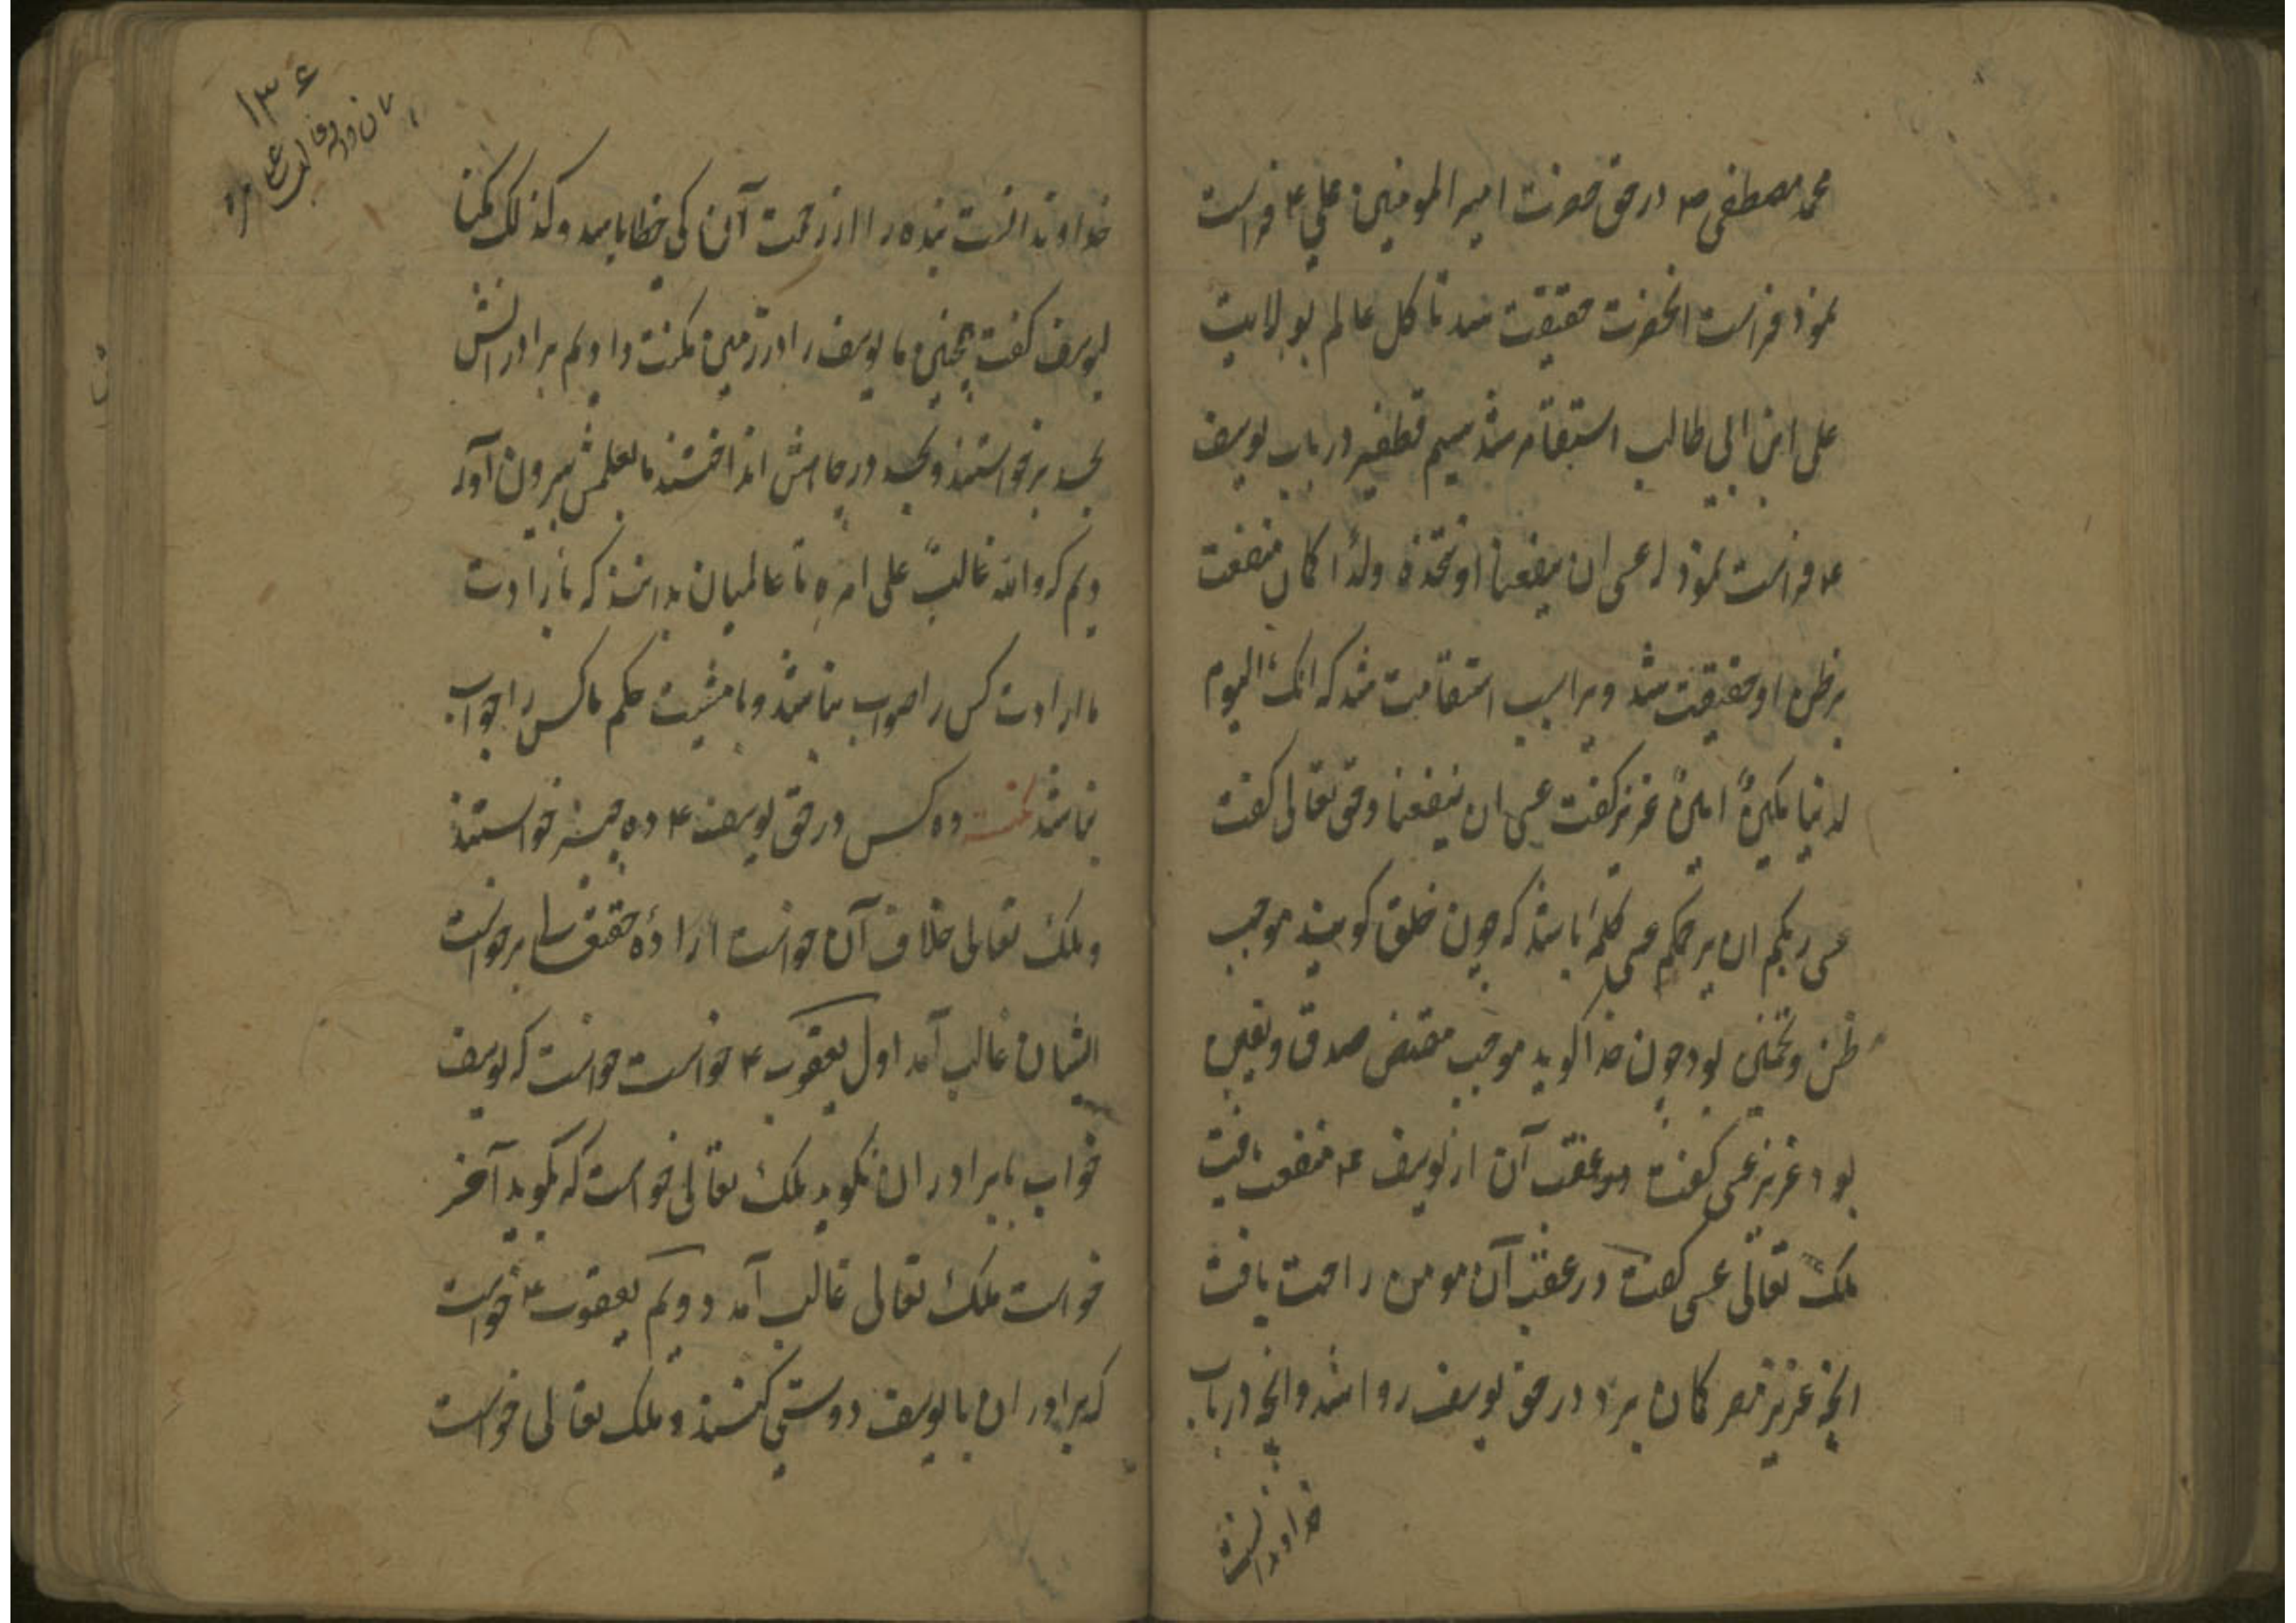 محمد مصطفی ص در حق حضرت امیر المومنین علی ع فراست
نمود فراست انحضرت حقیقت شد تا کل عالم بولایت
علی ابن ابی طالب استقامه شد سیم قطفیر در باب یوسف
ع فراست نمود که عسی ان ینفعنا او نتخذه ولدًا کان منفعت
بر ظن او حقیقت شد و برا سبب استقامت شد که انک الیوم
لدینا مکینٌ امینٌ عزیز کفت عسی ان ینفعنا و حق تعالی کفت
عسی ربکم ان یرحمکم عسی کلمه باشد که چون خلق کویند موجب
ظن و تخمین بود چون خدا کوید موجب مقتضی صدق و یقین
بود عزیز عسی کفت در عقب آن از یوسف ع منفعت یافت
ملک تعالی عسی کفت در عقب آن مومن راحمت یافت
انچه عزیز مصر کمان برد در حق یوسف روا شد و انچه در باب
خداوند انست
۱۳۶
خداوند انست بنده را از رحمت آن کی خطا باشد و کذلک مکنا
لیوسف کفت همچنین ما یوسف را در زمین مکنت دادیم برادرانش
بحسد برخواستند و بحسد در چاهش انداختند ما بعلمش بیرون آور
دیم که والله غالبٌ علی امره تا عالمیان بدانند که با ارادت
ما ارادت کس را صواب نباشد و با مشیت حکم ما کس را جواب
نباشد نکته ده کس در حق یوسف ع ده چیز خواستند
و ملک تعالی خلاف آن خواست ارادهٔ حقتعالی بر خواست
ایشان غالب آمد اول یعقوب ع خواست خواست که یوسف
خواب با برادران نکوید ملک تعالی خواست که بکوید آخر
خواست ملک تعالی غالب آمد دویم یعقوب ع خواست
که برادران با یوسف دوستی کنند و ملک تعالی خواست